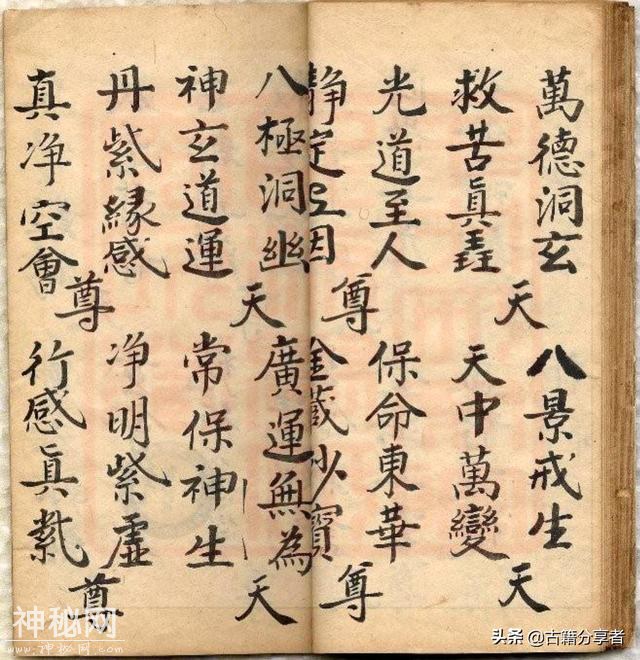 萬德洞玄 八景戒生
天 天
救苦眞 天中萬變
光道至人 保命東華
尊 尊
静定因 金藏妙寶
八極洞幽 廣運無為
天 天
神玄道運 常保神生
丹紫緣感 净明紫虛
尊 尊
真净空會 行感眞
神秘网
www.神秘网.com
头条 @古籍分享者